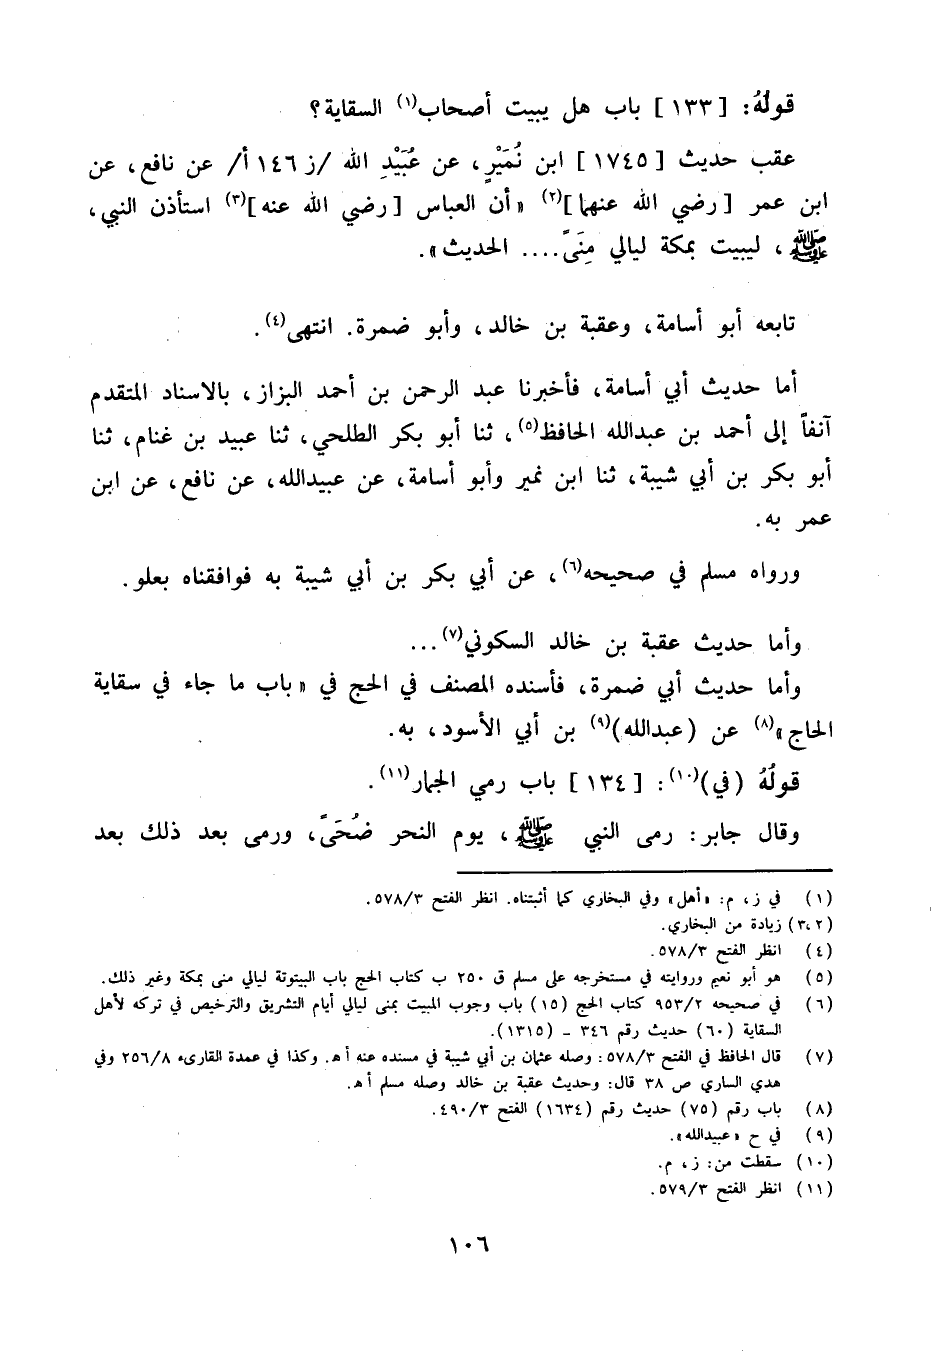 قولُهُ: [ ١٣٣ ] باب هل يبيت أصحاب(١) السقاية؟
عقب حديث [ ١٧٤٥ ] ابن نُمَيْرٍ، عن عُبَيْدِ الله /ز ١٤٦ أ/ عن نافع، عن
ابن عمر [ رضي الله عنهما ](٢) «أن العباس [ رضي الله عنه ](٣) استأذن النبي،
ﷺ، ليبيت بمكة ليالي مِنَىً.... الحديث».
تابعه أبو أسامة، وعقبة بن خالد، وأبو ضمرة. انتهى(٤).
أما حديث أبي أسامة، فأخبرنا عبد الرحمن بن أحمد البزاز، بالاسناد المتقدم
آنفاً إلى أحمد بن عبدالله الحافظ(٥)، ثنا أبو بكر الطلحي، ثنا عبيد بن غنام، ثنا
أبو بكر بن أبي شيبة، ثنا ابن نمير وأبو أسامة، عن عبيدالله، عن نافع، عن ابن
عمر به.
ورواه مسلم في صحيحه(٦)، عن أبي بكر بن أبي شيبة به فوافقناه بعلو.
وأما حديث عقبة بن خالد السكوني(٧)...
وأما حديث أبي ضمرة، فأسنده المصنف في الحج في «باب ما جاء في سقاية
الحاج»(٨) عن (عبدالله)(٩) بن أبي الأسود، به.
قولُهُ (في)(١٠): [ ١٣٤ ] باب رمي الجمار(١١).
وقال جابر: رمى النبي ﷺ، يوم النحر ضُحَىً، ورمى بعد ذلك بعد
(١) في ز، م: «أهل» وفي البخاري كما أثبتناه. انظر الفتح ٥٧٨/٣.
(٣،٢) زيادة من البخاري.
(٤) انظر الفتح ٥٧٨/٣.
(٥) هو أبو نعيم وروايته في مستخرجه على مسلم ق ٢٥٠ ب كتاب الحج باب البيتوتة ليالي منى بمكة وغير ذلك.
(٦) في صحيحه ٩٥٣/٢ كتاب الحج (١٥) باب وجوب المبيت بمنى ليالي أيام التشريق والترخيص في تركه لأهل
السقاية (٦٠) حديث رقم ٣٤٦ - (١٣١٥).
(٧) قال الحافظ في الفتح ٥٧٨/٣: وصله عثمان بن أبي شيبة في مسنده عنه أ هـ. وكذا في عمدة القارىء ٢٥٦/٨ وفي
هدي الساري ص ٣٨ قال: وحديث عقبة بن خالد وصله مسلم أ هـ.
(٨) باب رقم (٧٥) حديث رقم (١٦٣٤) الفتح ٤٩٠/٣.
(٩) في ح «عبيدالله».
(١٠) سقطت من: ز، م.
(١١) انظر الفتح ٥٧٩/٣.
١٠٦